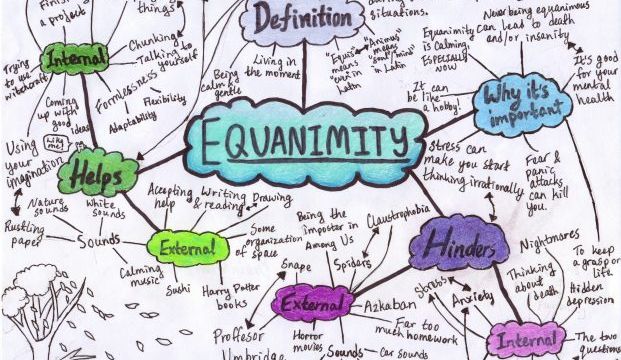 Finishing
a project
things
Definition
situations.
Never being equanimous
can lead to death
and/or insanity
Equanimity
is calming,
ESPECIALLY
NOW
It's good
for your
mental
health
Internal
Chunking
Talking to
yourself
Trying
to use
witchcraft
Formlessness
Flexibility
Adaptability
Coming
up with
good
ideas
Being
calm &
gentle
Living in
the moment
"Equis"
means
"even"
in Latin
"Animus"
means
"soul/mind"
in Latin
It can
be like
a hobby!
Why it's
important
EQUANIMITY
Using
your
imagination
like
me
Helps
Stress can
make you start
thinking irrationally
Fear &
panic
attacks
can kill
you.
Nature
sounds
White
sounds
Rustling
paper
Sounds
Calming
music
External
Accepting
help
Writing
& reading
Drawing
Some
organization
of space
Sushi
Harry Potter
books
Being the
imposter in
Among Us
Claustrophobia
Snape
Spiders
Hinders
Nightmares
To keep
a grasp on
life
External
Azkaban
Far too
much homework
Stress
Anxiety
Thinking
about
death
Hidden
depression
Proffesor
Umbridge
Horror
movies
Sounds
Car sounds
Internal
The two
questions